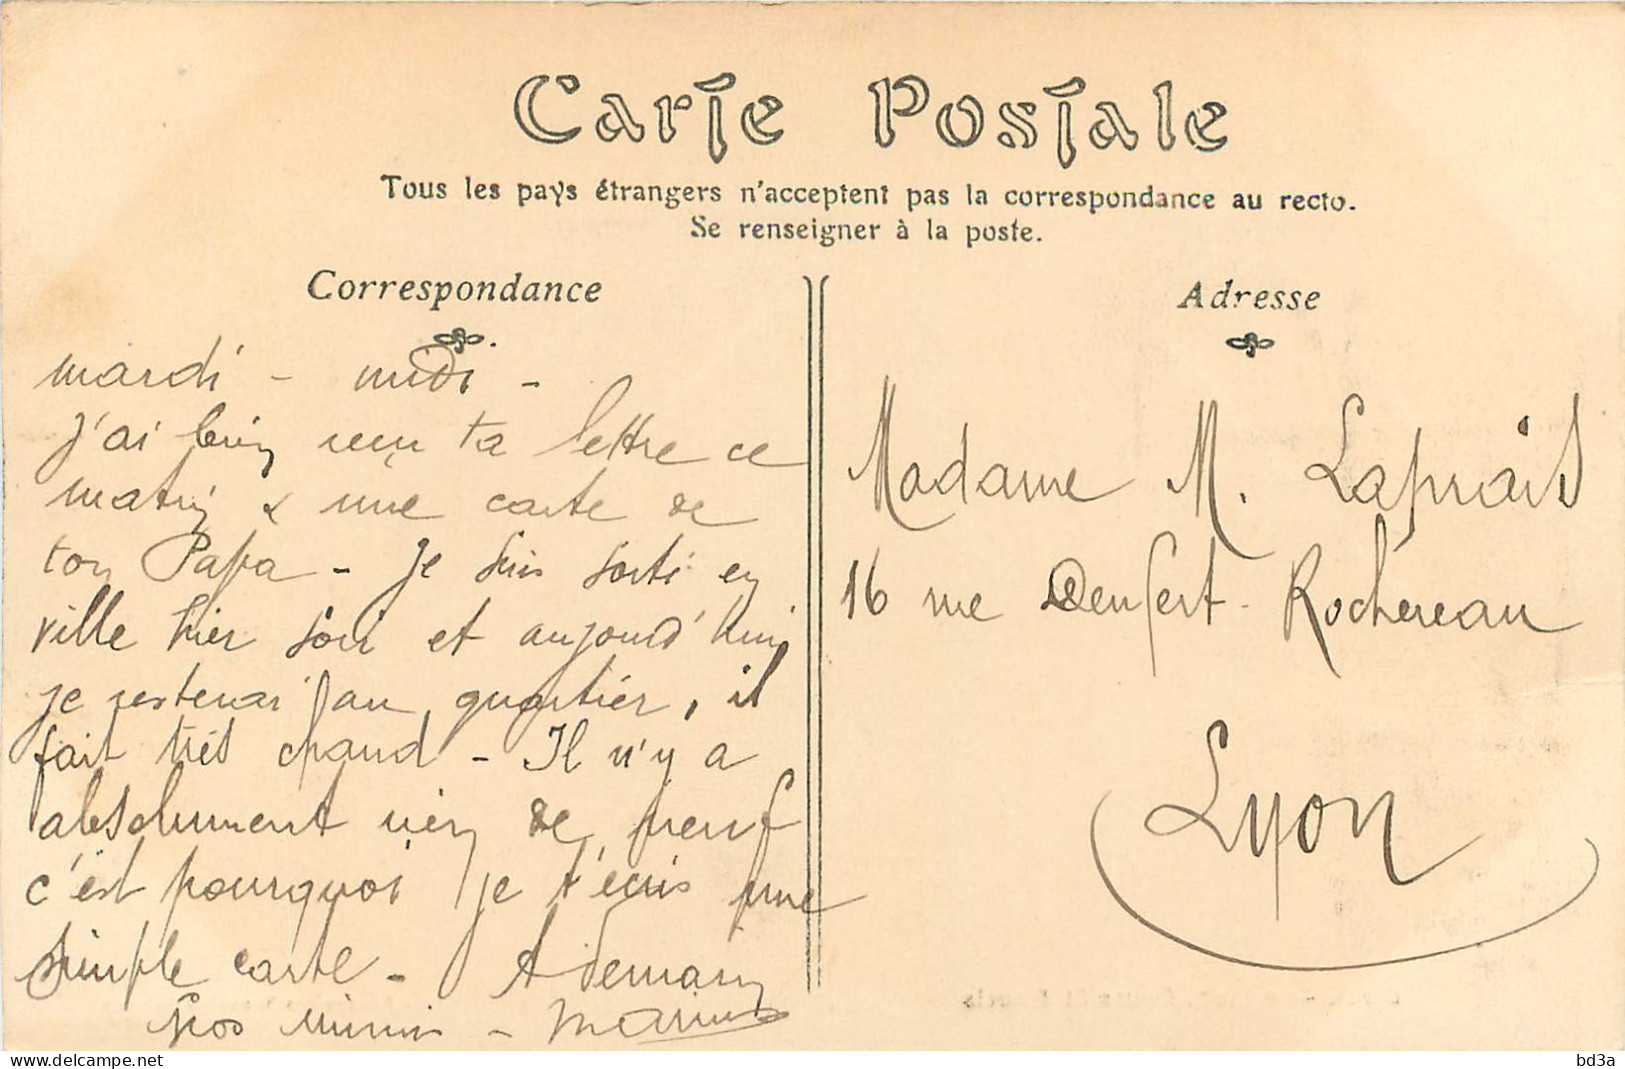 Carte Postale
Tous les pays étrangers n'acceptent pas la correspondance au recto.
Se renseigner à la poste.
Correspondance
mardi - midi -
J'ai bien reçu ta lettre ce
matin & une carte de
ton Papa - Je suis sorti en
ville hier soir et aujourd'hui
je resterai au quartier, il
fait très chaud - Il n'y a
absolument rien de neuf
c'est pourquoi je t'écris une
simple carte - A demain
Gros mimis - Marius
Adresse
Madame M. Laprais
16 rue Denfert-Rochereau
Lyon
www.delcampe.net
bd3a